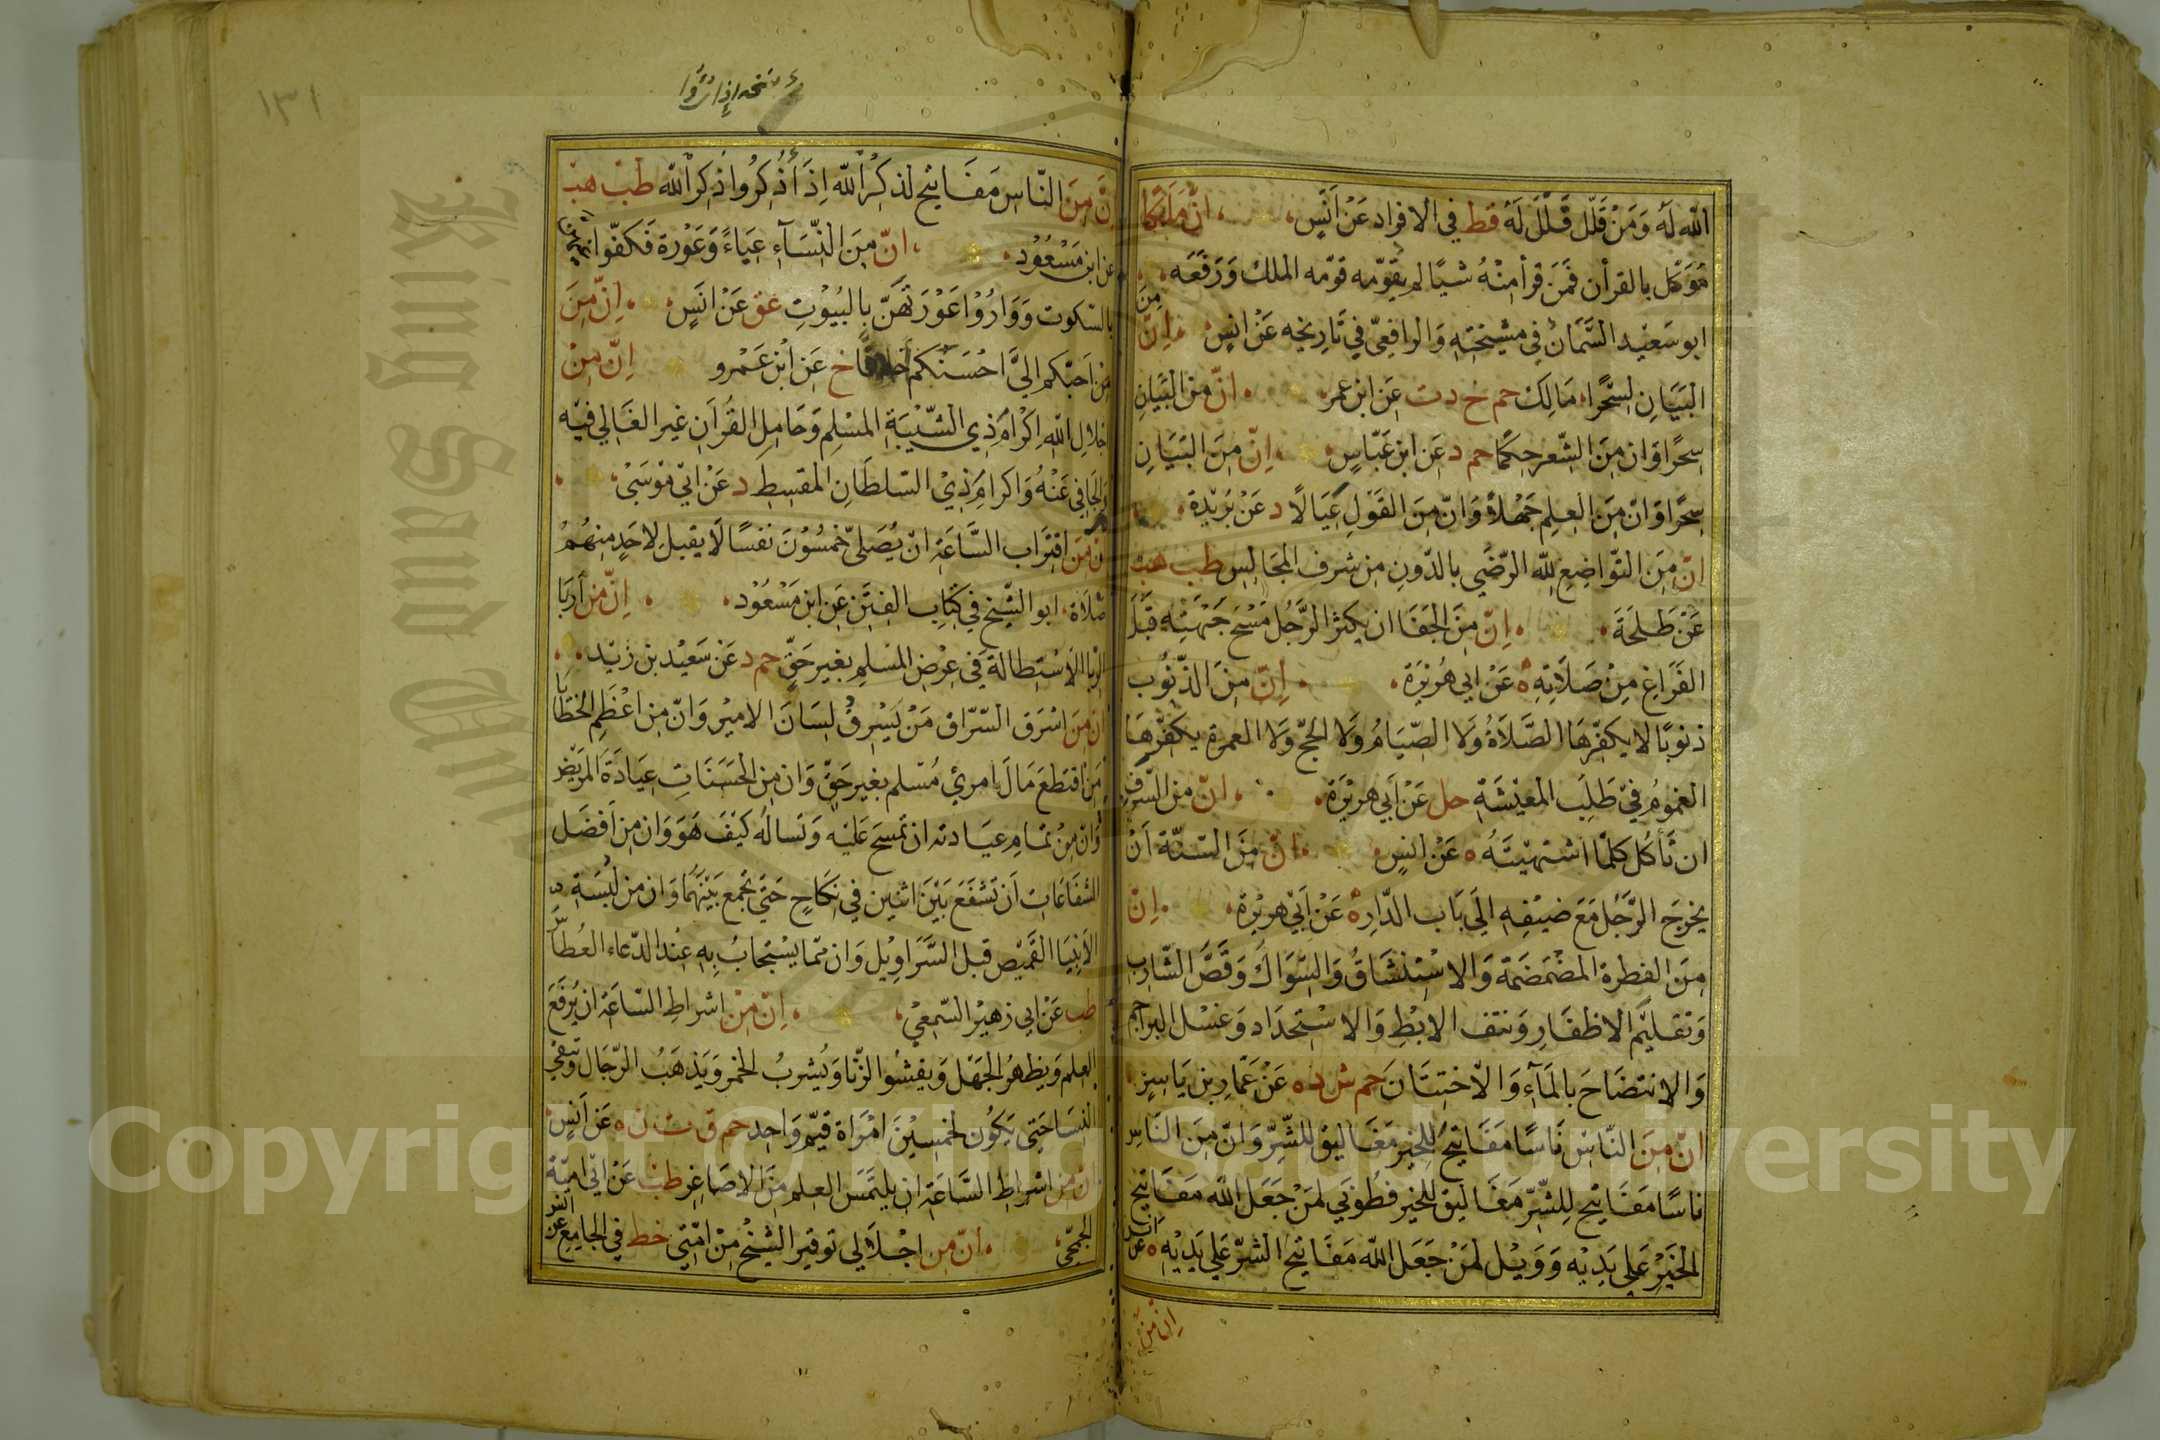 الله لَهُ وَمَنْ قَلَّلَ قَلَّلَ لَهُ قط في الافراد عَنْ اَنَسٍ اِنَّ مَلَكًا
مُوَكَّل بالقرأن فمَنَ قرأ مِنْهُ شيًا لم يقوّمه قوّمه الملك وَرَفَعَه
ابو سَعيْد السَّمَان في مشيْخته وَالرافعيّ في تاريخه عَنْ انسٍ اِنَّ مِنَ
البَيَانِ لسْحًرا مَالِكْ حم خ د ت عَنِ ابن عمر انّ مِنَ البَيَانِ
سِحرًا وَان مِنَ الشّعر حِكمًا حم د عَن ابن عَبّاسٍ اِنّ مِنَ البَيَانِ
سِحرًا وَانّ مِنَ العِلم جَهْلاً وَانّ مِنَ القَوْلِ عَيَالًا د عَنْ بُرَيْدة
انّ مِنَ التّواضِعِ لله الرّضَى بالدّونِ مِن شرف المجَالِسِ طب هب
عَنْ طَلحَةَ اِنّ مِنَ الجَفَا ان يكثر الرَّجُل مَسْحَ جَبْهَتِهِ قَبْلَ
الفَرَاغِ مِنْ صَلاَتِهِ ه عَنْ ابي هُرَيْرَة اِنّ مِنَ الذّنوُب
ذنوبًا لا يكفّرهَا الصَّلاَةُ وَلا الصّيَامُ وَلا الحجّ وَلا العمرة يكفّرهَا
الهمُومُ فيْ طَلِب المعْيشَةِ حل عَنْ اَبي هريْرَة انّ مِن السّرفِ
ان تَأكُل كلمَا اشتهيْتَهُ ه عَنْ انسٍ انّ مِنَ السّنّة اَنْ
يخرجَ الرَّجُل مَعَ ضيْفِهِ الَى بَابِ الدّارِ ه عَنْ اَبيْ هريْرة اِنّ
مِنَ الفطرة المضْمَضَة وَالاسْتِنشَاقُ وَالسّوَاكُ وَقَصّ الشّارِب
وَتقليْم الاظفَارِ وَنتف الابْطِ وَالاسْتحدَاد وَغسْل البرَاجم
وَالانتضَاحَ بالمَآءِ وَالاختتَانَ حم ش د ه عَنْ عَمّارِ بن يَاسِرٍ
انّ مِنَ النّاسِ نَاسًا مَفَاتيْحُ للخيرِ مَغَاليق للشّرِّ وَانّ مِنَ النّاسِ
ناسًا مَفَاتيْح لِلشّرّ مَغَاليق للخير فطُوْبَي لمَنْ جَعَلَ الله مَفَاتيْح
الخَيْرِ عَلى يَدِيْه وَوَيْل لمَنْ جَعَلَ الله مَفَاتيْحَ الشرّ عَلي يَدَيْهِ ه عن انس
اِنّ مِنَ
١٣١
نسخه اذا رُؤا
اِنّ مِنَ النّاسِ مَفَاتيْح لذكْر الله اِذَا ذُكِرُوا ذُكِرَ الله طَب هب
عَنِ ابن مَسْعُوْد انّ مِنَ النّسَآءِ عِيَاءً وَعَوْرة فَكفّوا عيهن
بالسّكوت وَوَارُوْا عَوْرَتهنَّ بِالبُيُوْتِ عق عَنْ انَسٍ اِنّ مِنَ
مِن اَحبّكم الِيَّ احْسَنُكم اخلاقًا خ عَن ابْن عَمْرو اِنّ مِنْ
اجْلالِ اللهِ اِكْرَامُ ذِي الشّيْبَةِ المسْلِم وَحَامِلِ القُرْآن غَير الغَالي فيْه
وَالجَافِي عَنْهُ وَاكرَام ذِيْ السّلطَانِ المقسِطِ د عَنْ ابي مُوْسَىْ
انّ مِنَ اقتِرَاب السَّاعَة انْ يُصَلىّ خمسُوْنَ نَفسًا لاَ يقبل لاحَدٍ مِنهُمْ
صَلاة ابو الشّيْخ في كتَابِ الفِتَن عَن ابن مَسْعُوْد اِنّ مِن اَربَا
الرّبا الاسْتِطَالة في عِرْض المسْلِم بغير حَقٍّ حم د عَنْ سَعيْد بن زيْد
انّ مِنَ اسْرَق السّرّاق مَنْ يَسْرِقُ لسَانَ الاميْرِ وَانّ مِن اعْظَم الخطَايَا
مَن اقتَطَعَ مَال امرئٍ مُسْلم بغير حَقّ وَان مِن الحَسَنَاتِ عيَادَةَ المَريْضِ
وَانّ مِنْ تمَامِ عيَادته ان تَمسَحَ عَليْه وَتسالُه كيْفَ هُوَ وَان مِن اَفضَلِ
الشفَاعَات اَن تشْفَعَ بَيْنَ اثنَيْن في نِكَاحٍ حَتى تجْمعَ بَيْنَهُمَا وَان مِن لُبْسَة
الاَنبيَا القَمِيْصَ قبل السَّرَاويْل وَان ممّا يسْتجَابُ بِهِ عِند الدّعاء العُطاسُ
طب عَنْ ابي زهَيْر السّمعيْ اِنّ مِنْ اشراطِ السّاعَة ان يُرْفَعَ
العِلم وَيظهَر الجَهْل وَيفشُوا الزّنا وَيُشربُ الخمر وَيَذهَبُ الرّجَال وَتَبقى
النّسَا حَتى يَكُون لخمسِيْنَ امْرَاة قيّم وَاحِد حم ق ت ن ه عَن اَنَسٍ
انّ مِن اشرَاطِ السَّاعَة ان يلتمَسَ العِلم مِن الاصَاغِر طب عَنْ ابي امَيّة
الجمَحيّ انّ مِن اجْلاَلي توقيرَ الشّيْخِ مِنْ امّتي خط في الجامِع عن انس
Copyright © King Saud University
King Saud University